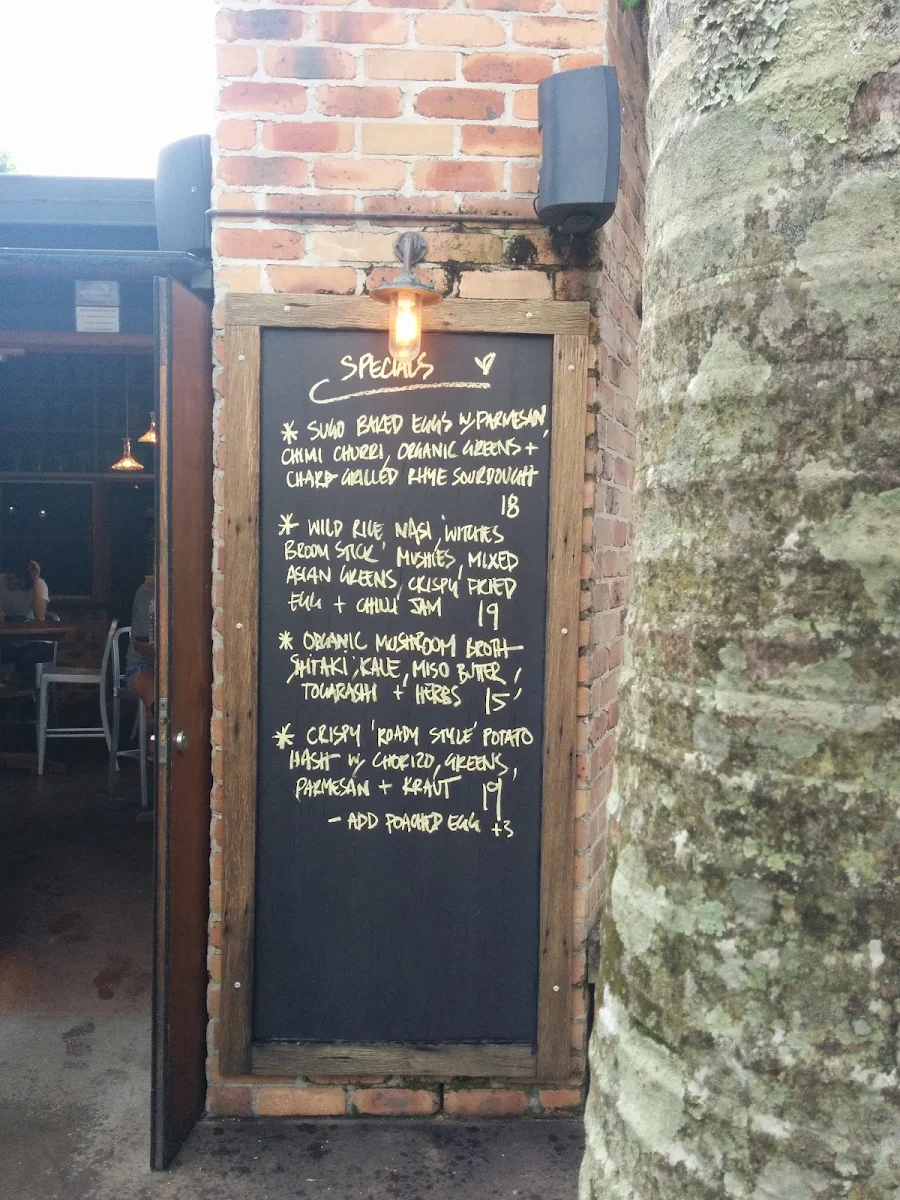 SPECIALS
* SUGO BAKED EGGS W/ PARMESAN,
CHIMI CHURRI, ORGANIC GREENS +
CHARD GRILLED RHYE SOURDOUGH
18
* WILD RICE NASI, 'WITCHES
BROOM STICK' MUSHIES, MIXED
ASIAN GREENS, CRISPY FRIED
EGG + CHILLI JAM 19
* ORGANIC MUSHROOM BROTH -
SHITAKI, KALE, MISO BUTER,
TOGARASHI + HERBS 15
* CRISPY 'ROADY STYLE' POTATO
HASH W/ CHORIZO, GREENS,
PARMESAN + KRAUT 19
- ADD POACHED EGG +3